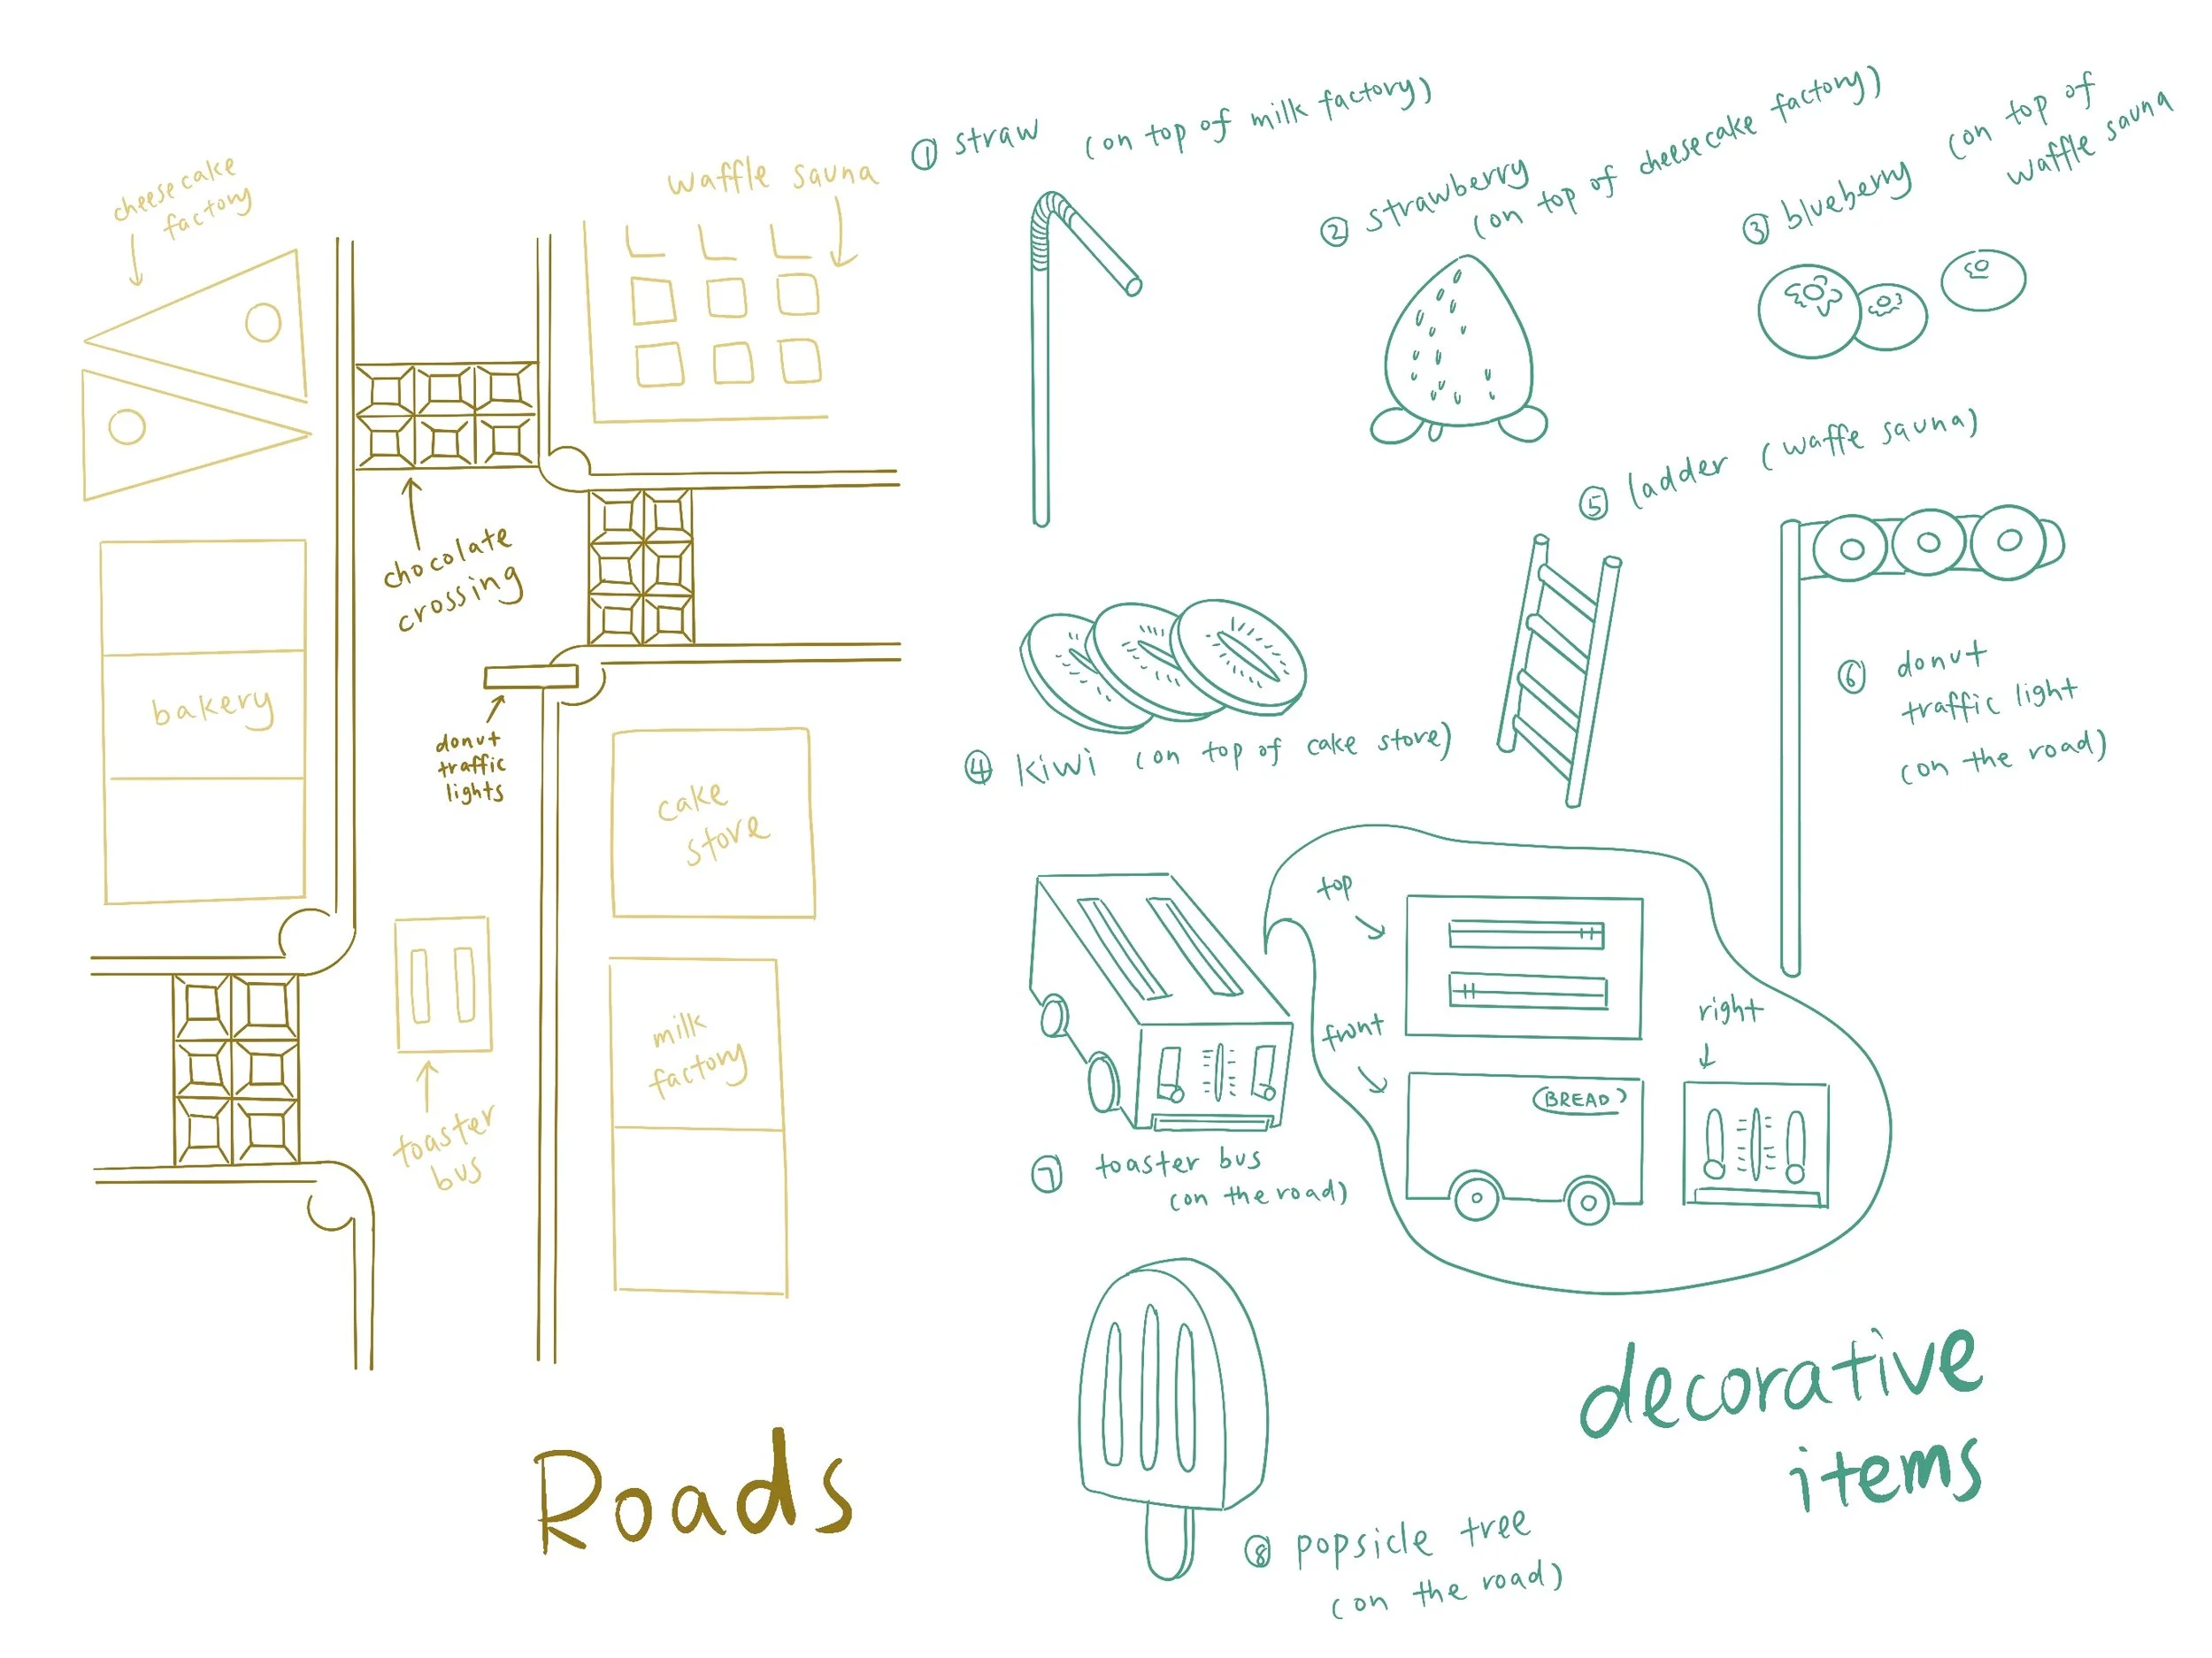 cheesecake
factory
waffle sauna
chocolate
crossing
bakery
donut
traffic
lights
cake
store
milk
factory
toaster
bus
Roads
① straw (on top of milk factory)
② strawberry
(on top of cheesecake factory)
③ blueberry (on top of
waffle sauna
④ kiwi (on top of cake store)
⑤ ladder (waffe sauna)
⑥ donut
traffic light
(on the road)
top
front
right
BREAD
⑦ toaster bus
(on the road)
⑧ popsicle tree
(on the road)
decorative
items